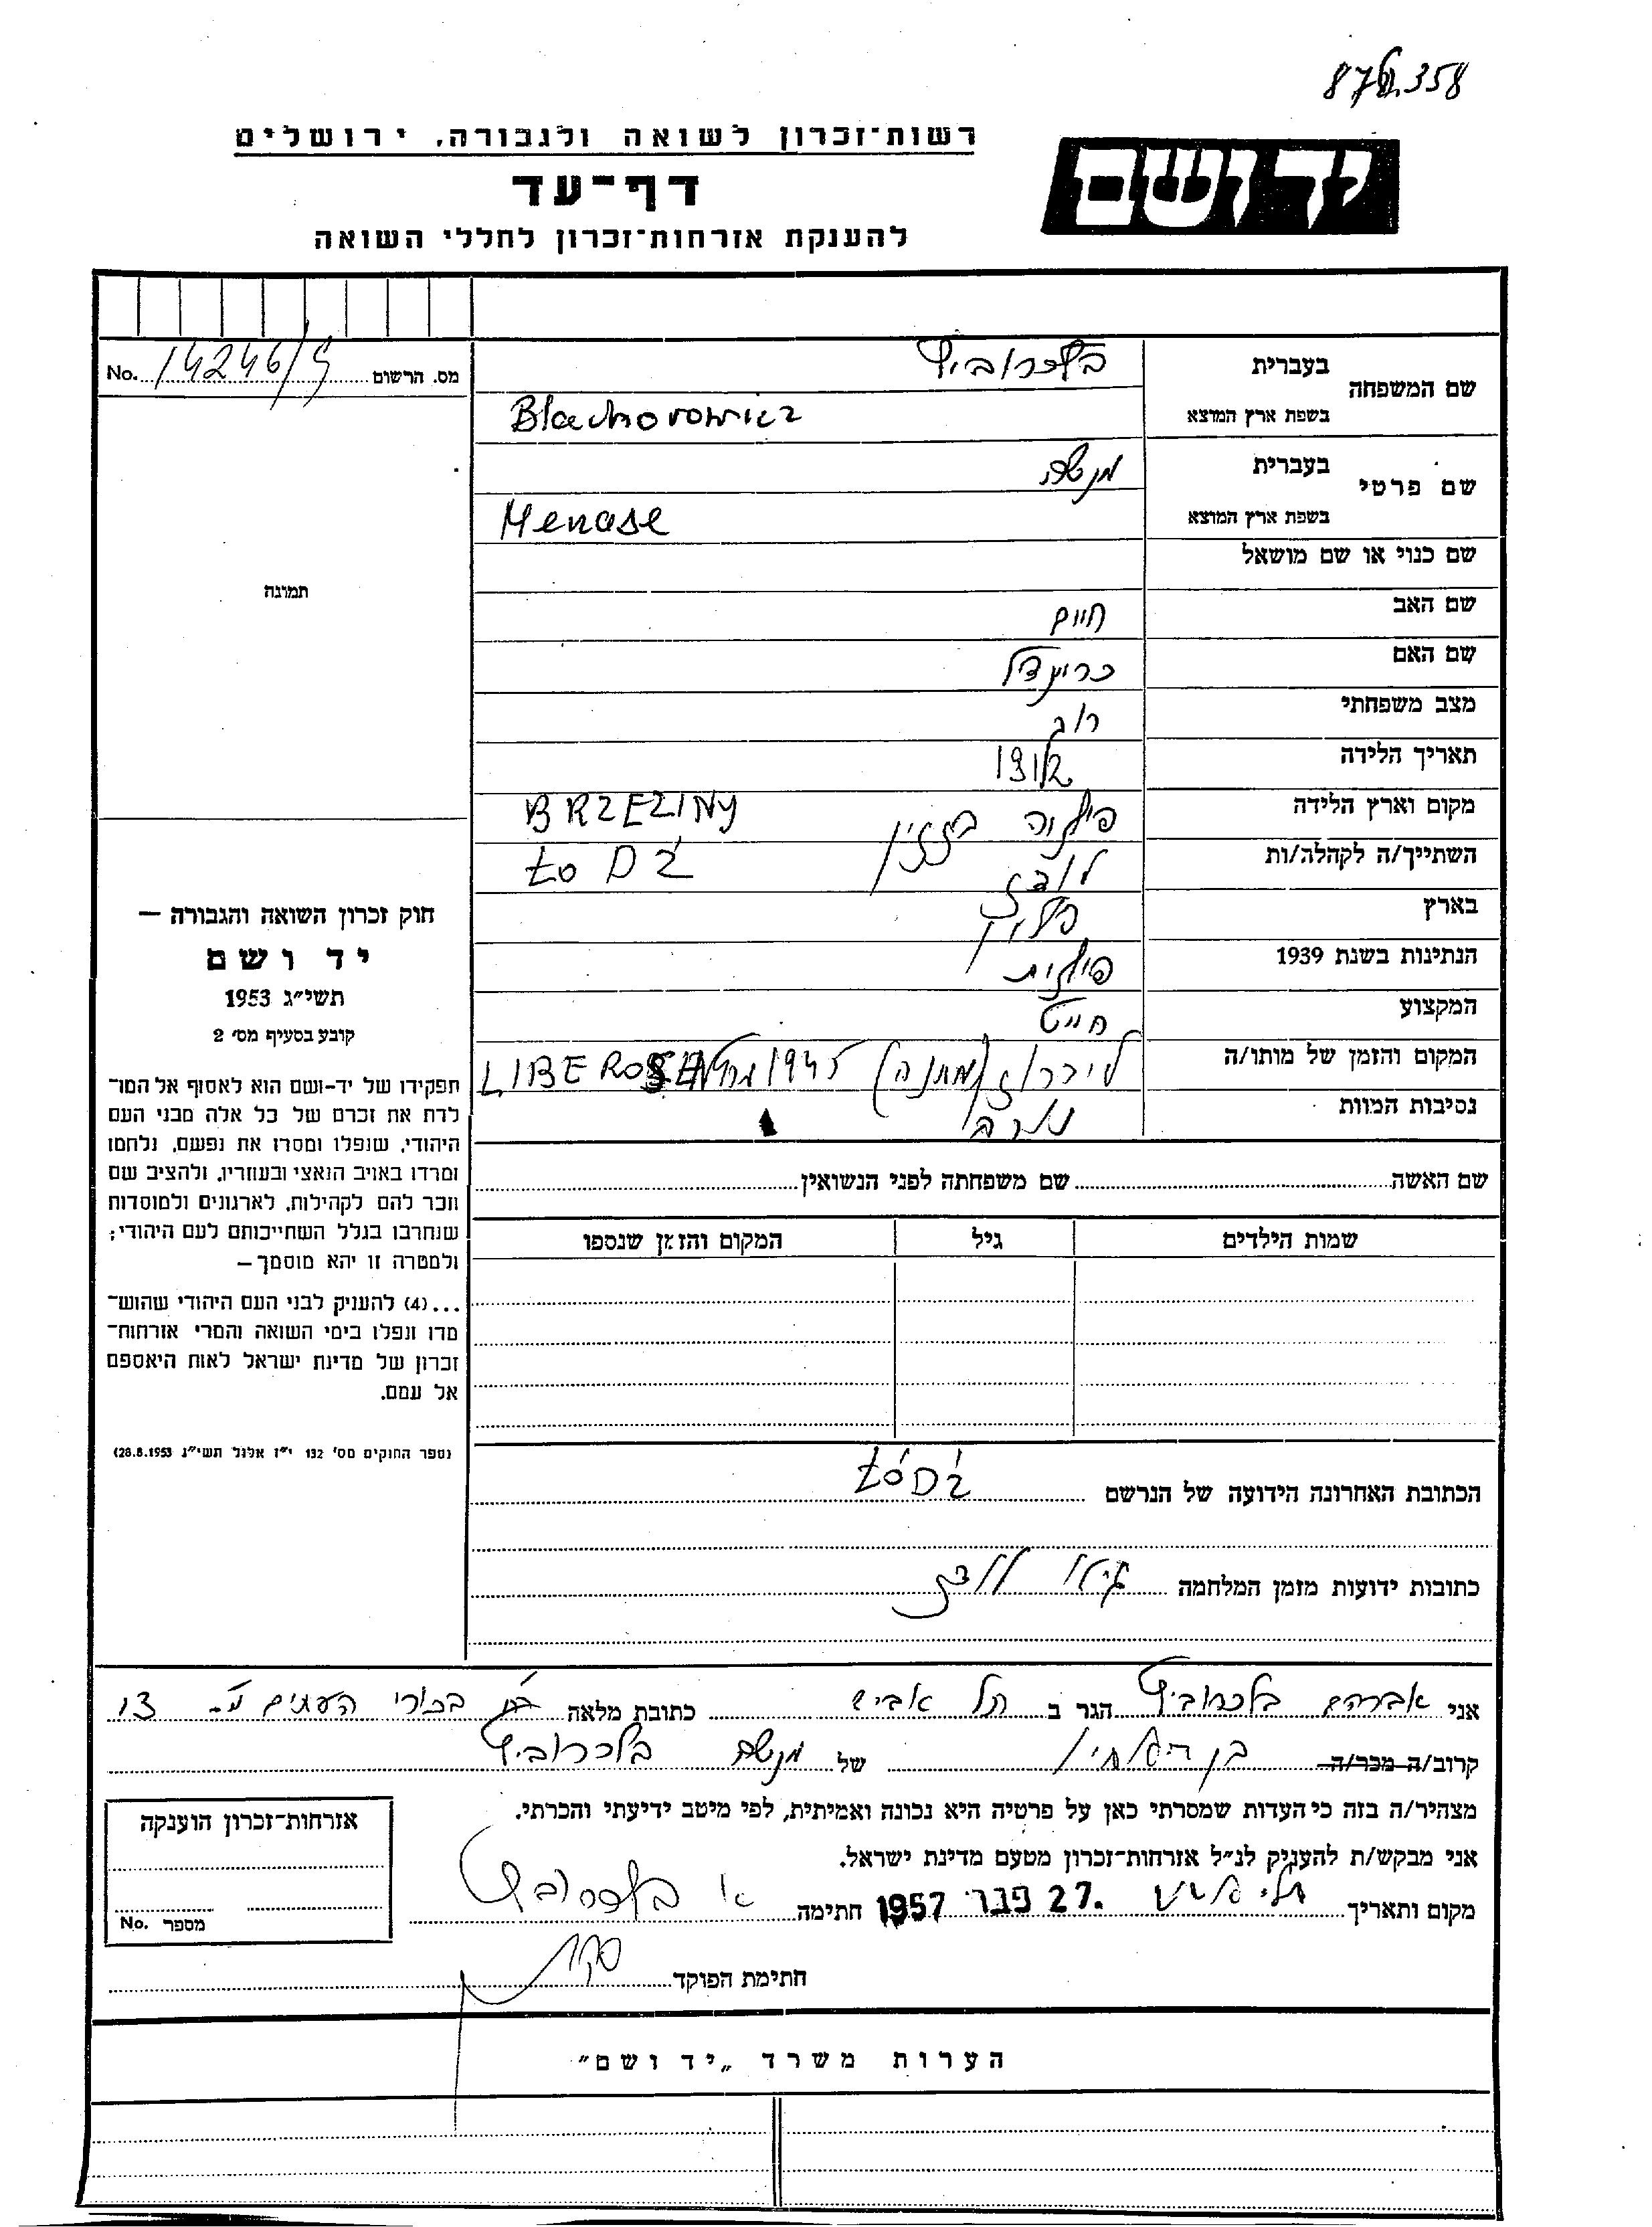 358
רשות־זכרון לשואה ולגבורה, ירושלים
יד ושם
דף־עד
להענקת אזרחות־זכרון לחללי השואה
מס. הרשום 14246/5 No.
שם המשפחה
בעברית בלכרוביץ
בשפת ארץ המוצא Blachorowicz
שם פרטי
בעברית מנשה
בשפת ארץ המוצא Menase
שם כנוי או שם מושאל
שם האב חיים
שם האם
מצב משפחתי
תאריך הלידה
מקום וארץ הלידה פולניה BRZEZINY
השתייך/ה לקהלה/ות לודז ŁODŹ
בארץ פולין
הנתינות בשנת 1939 פולנית
המקצוע חייט
המקום והזמן של מותו/ה 1945
נסיבות המוות
שם האשה שם משפחתה לפני הנשואין
שמות הילדים גיל המקום והזמן שנספו
תמונה
חוק זכרון השואה והגבורה —
יד ושם
תשי״ג 1953
קובע בסעיף מס׳ 2
תפקידו של יד־ושם הוא לאסוף אל המו־
לדת את זכרם של כל אלה מבני העם
היהודי, שנפלו ומסרו את נפשם, נלחמו
ומרדו באויב הנאצי ובעוזריו, ולהציב שם
וזכר להם לקהילות, לארגונים ולמוסדות
שנחרבו בגלל השתייכותם לעם היהודי;
ולמטרה זו יהא מוסמך —
...(4) להעניק לבני העם היהודי שהוש־
מדו ונפלו בימי השואה והמרי אזרחות־
זכרון של מדינת ישראל לאות היאספם
אל עמם.
(ספר החוקים מס׳ 132 י״ז אלול תשי״ג 28.8.1953)
הכתובת האחרונה הידועה של הנרשם ŁÓDŹ
כתובות ידועות מזמן המלחמה גיטו לודז
אני אברהם בלכרוביץ הגר ב תל אביב כתובת מלאה בכורי העתים 13
קרוב/ה מכר/ה בן של מנשה בלכרוביץ
מצהיר/ה בזה כי העדות שמסרתי כאן על פרטיה היא נכונה ואמיתית, לפי מיטב ידיעתי והכרתי.
אני מבקש/ת להעניק לנ״ל אזרחות־זכרון מטעם מדינת ישראל.
מקום ותאריך 27. פבר׳ 1957 חתימה א בלכרוביץ
חתימת הפוקד
אזרחות־זכרון הוענקה
מספר No.
הערות משרד „יד ושם״